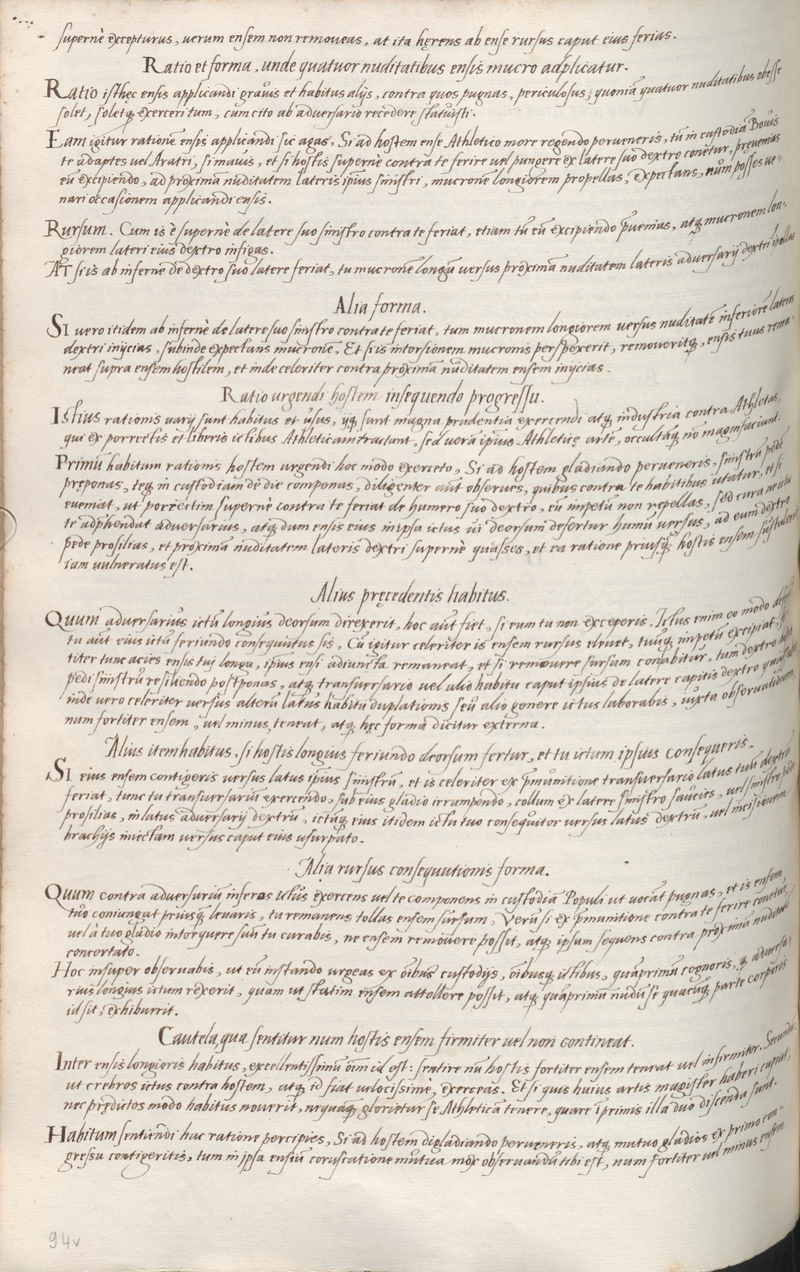 supernè excepturus, uerum ensem non remoueas, at ita hęrens ab ense rursus caput eius ferias.
Ratio et forma, unde quatuor nuditatibus ensis mucro adplicatur.
Ratio isthęc ensis applicandi grauis et habitus alijs, contra quos pugnas, periculosus, quoniã quatuor nuditatibus obesse
solet, soletq̨ exerceri tum, cum cito ab aduersario recedere statuisti.
Eam igitur rationẽ ensis applicandi sic agas, Si ad hostem ense Athletico more regendo perueneris, tu in custodiã Bouis
te adaptes uel Aratri, si mauis, et si hostis supernè contra te ferire uel pungere ex latere suo dextro conetur, pręuenias
eũ excipiendo, ad proximã nuditatem lateris ipsius sinistri, mucronẽ longiorem propellas, expectans, num posses ue-
nari occasionem applicandi ensis.
Rursum. Cum is è supernè de latere suo sinistro contra te feriat, etiam tũ eũ excipiendo p̃uenias, atq̨ mucronem lon-
giorem lateri eius dextro infigas.
At si is ab infernè de dextro suo latere feriat, tu mucronẽ longũ uersus proximã nuditatem lateris aduersarij dextri
Alia forma.
Si uero itidem ab infernè de latere suo sinistro contra te feriat, tum mucronem longiorem uersus nuditatẽ inferiorẽ lateris
dextri inijcias, subinde expectans mucronẽ. Et si is intorsionem mucronis perspexerit, remoueritq̨, ensis tuus rema-
neat supra ensem hostilem, et inde celeriter contra proximã nuditatem ensem inijcias.
Ratio urgendi hostem insequendo progressu.
Istius rationis uarij sunt habitus et usus, ijq̨ sunt magna prudentia exercendi atq̨ industria contra Athletas,
qui ex porrectis et liberis ictibus Athleticam tractant, sed uerã ipsius Athleticę artẽ, occultãq̨ nõ magnifaciunt.
Primũ habitum rationis hostem urgendi hoc modo exerceto, Si ad hostem gladiando perueneris, sinistrũ pedẽ
pręponas, teq̨ in custodiam de die componas, diligenter aũt obserues, quibus contra te habitibus utatur, et si
eueniat, ut porrectim supernè contra te feriat de humero suo dextro, eũ impetũ non repellas, sed cura ne ictu
te adphendat aduersarius, atq̨ dum ensis eius in ipsa ictus ui deorsum desertur humũ uersus, ad eum dextro
pede prosilias, et proximã nuditatem lateris dextri supernè quasses, et ea ratione priusq̃ hostis ensem sustulerit
iam uulneratus est.
Alius pręcedentis habitus.
Quum aduersarius ictũ longius deorsum direxerit, hoc aũt fiet, si eum tu non exceperis. Ictus enim eo modo
tu aũt eius ictũ feriundo consequutus sis, Cũ igitur celeriter is ensem rursus eleuet, tuuq̨ impetũ excipiat,
titer tunc acies ensis tuj longa, ipsius ensi adiuncta remaneat, et si remouere sursum conabitur, tum dextro
pedi sinistrũ resiliendo postponas, atq̨ transuersario uel alio habitu caput ipsius de latere capitis dextro quassabis
inde uero celeriter uersus alterũ latus habitu duplationis seũ alio genere ictus laborabis, iuxta obseruationem,
num fortiter ensem, uel minus teneat, atq̨ hęc forma dicitur externa.
Alius item habitus, si hostis longius feriundo deorsum fertur, et tu ictum ipsius consequeris.
Si eius ensem contigeris uersus latus ipsius sinistrũ, et is celeriter ex p̃munitione transuersario latus tuũ dextrũ
feriat, tunc tu transuersariũ exercendo, sub eius gladio irrumpendo, collum ex latere sinistro saucies, uel sinistro pede
prosilias, in latus aduersarij dextrũ, ictũq̨ eius itidem ictu tuo consequitor uersus latus dextrũ, uel incisionem
brachijs iniectam uersus caput eius usurpato.
Alia rursus consequutionis forma.
Quum contra aduersariũ inferas ictus exercens uel te componens in custodiã Populi ut uocãt pugnas, et is ensem
tuo coniungat priusq̃ leuaris, tu remanens tollas ensem sursum, Verũ si ex p̃munitione contra te ferire conetur,
uel à tuo gladio intorquere suũ tu curabis, ne ensem remouere possit, atq̨ ipsum sequens contra proximã nuditatẽ
concertato.
Hoc insuper obseruabis, ut eũ instando urgeas ex õibus custodijs, õibusq̨ ictibus, quãprimũ cognoris, q̨ aduersa-
rius longius ictum rexerit, quam ut statim ensem attollere possit, atq̨ quãprimũ nudũ sẽ quacũq̨ parte corporis
id sit, exhibuerit.
Cautela, qua sentitur num hostis ensem firmiter uel non contineat.
Inter ensis longioris habitus, excellentissimũ õim id est: sentire nũ hostis fortiter ensem teneat uel infirmiter. Secundo
ut crebros ictus contra hostem, atq̨ id fiat uelocissimè, exerceas. Et si quis huius artis magister haberi caput,
nec prędictos modo habitus nouerit, nequaq̃ glorietur se Athleticã tenere, quare ĩprimis illa duo discenda sunt.
Habitum sentiendi hac ratione percipies, Si ad hostem digladiando perueneris, atq̨ mutuo gladios ex primo con-
gressu contigeritis, tum in ipsa ensiũ coruscatione mutua mox obseruandũ tibi est, num fortiter uel minus ensem
94v